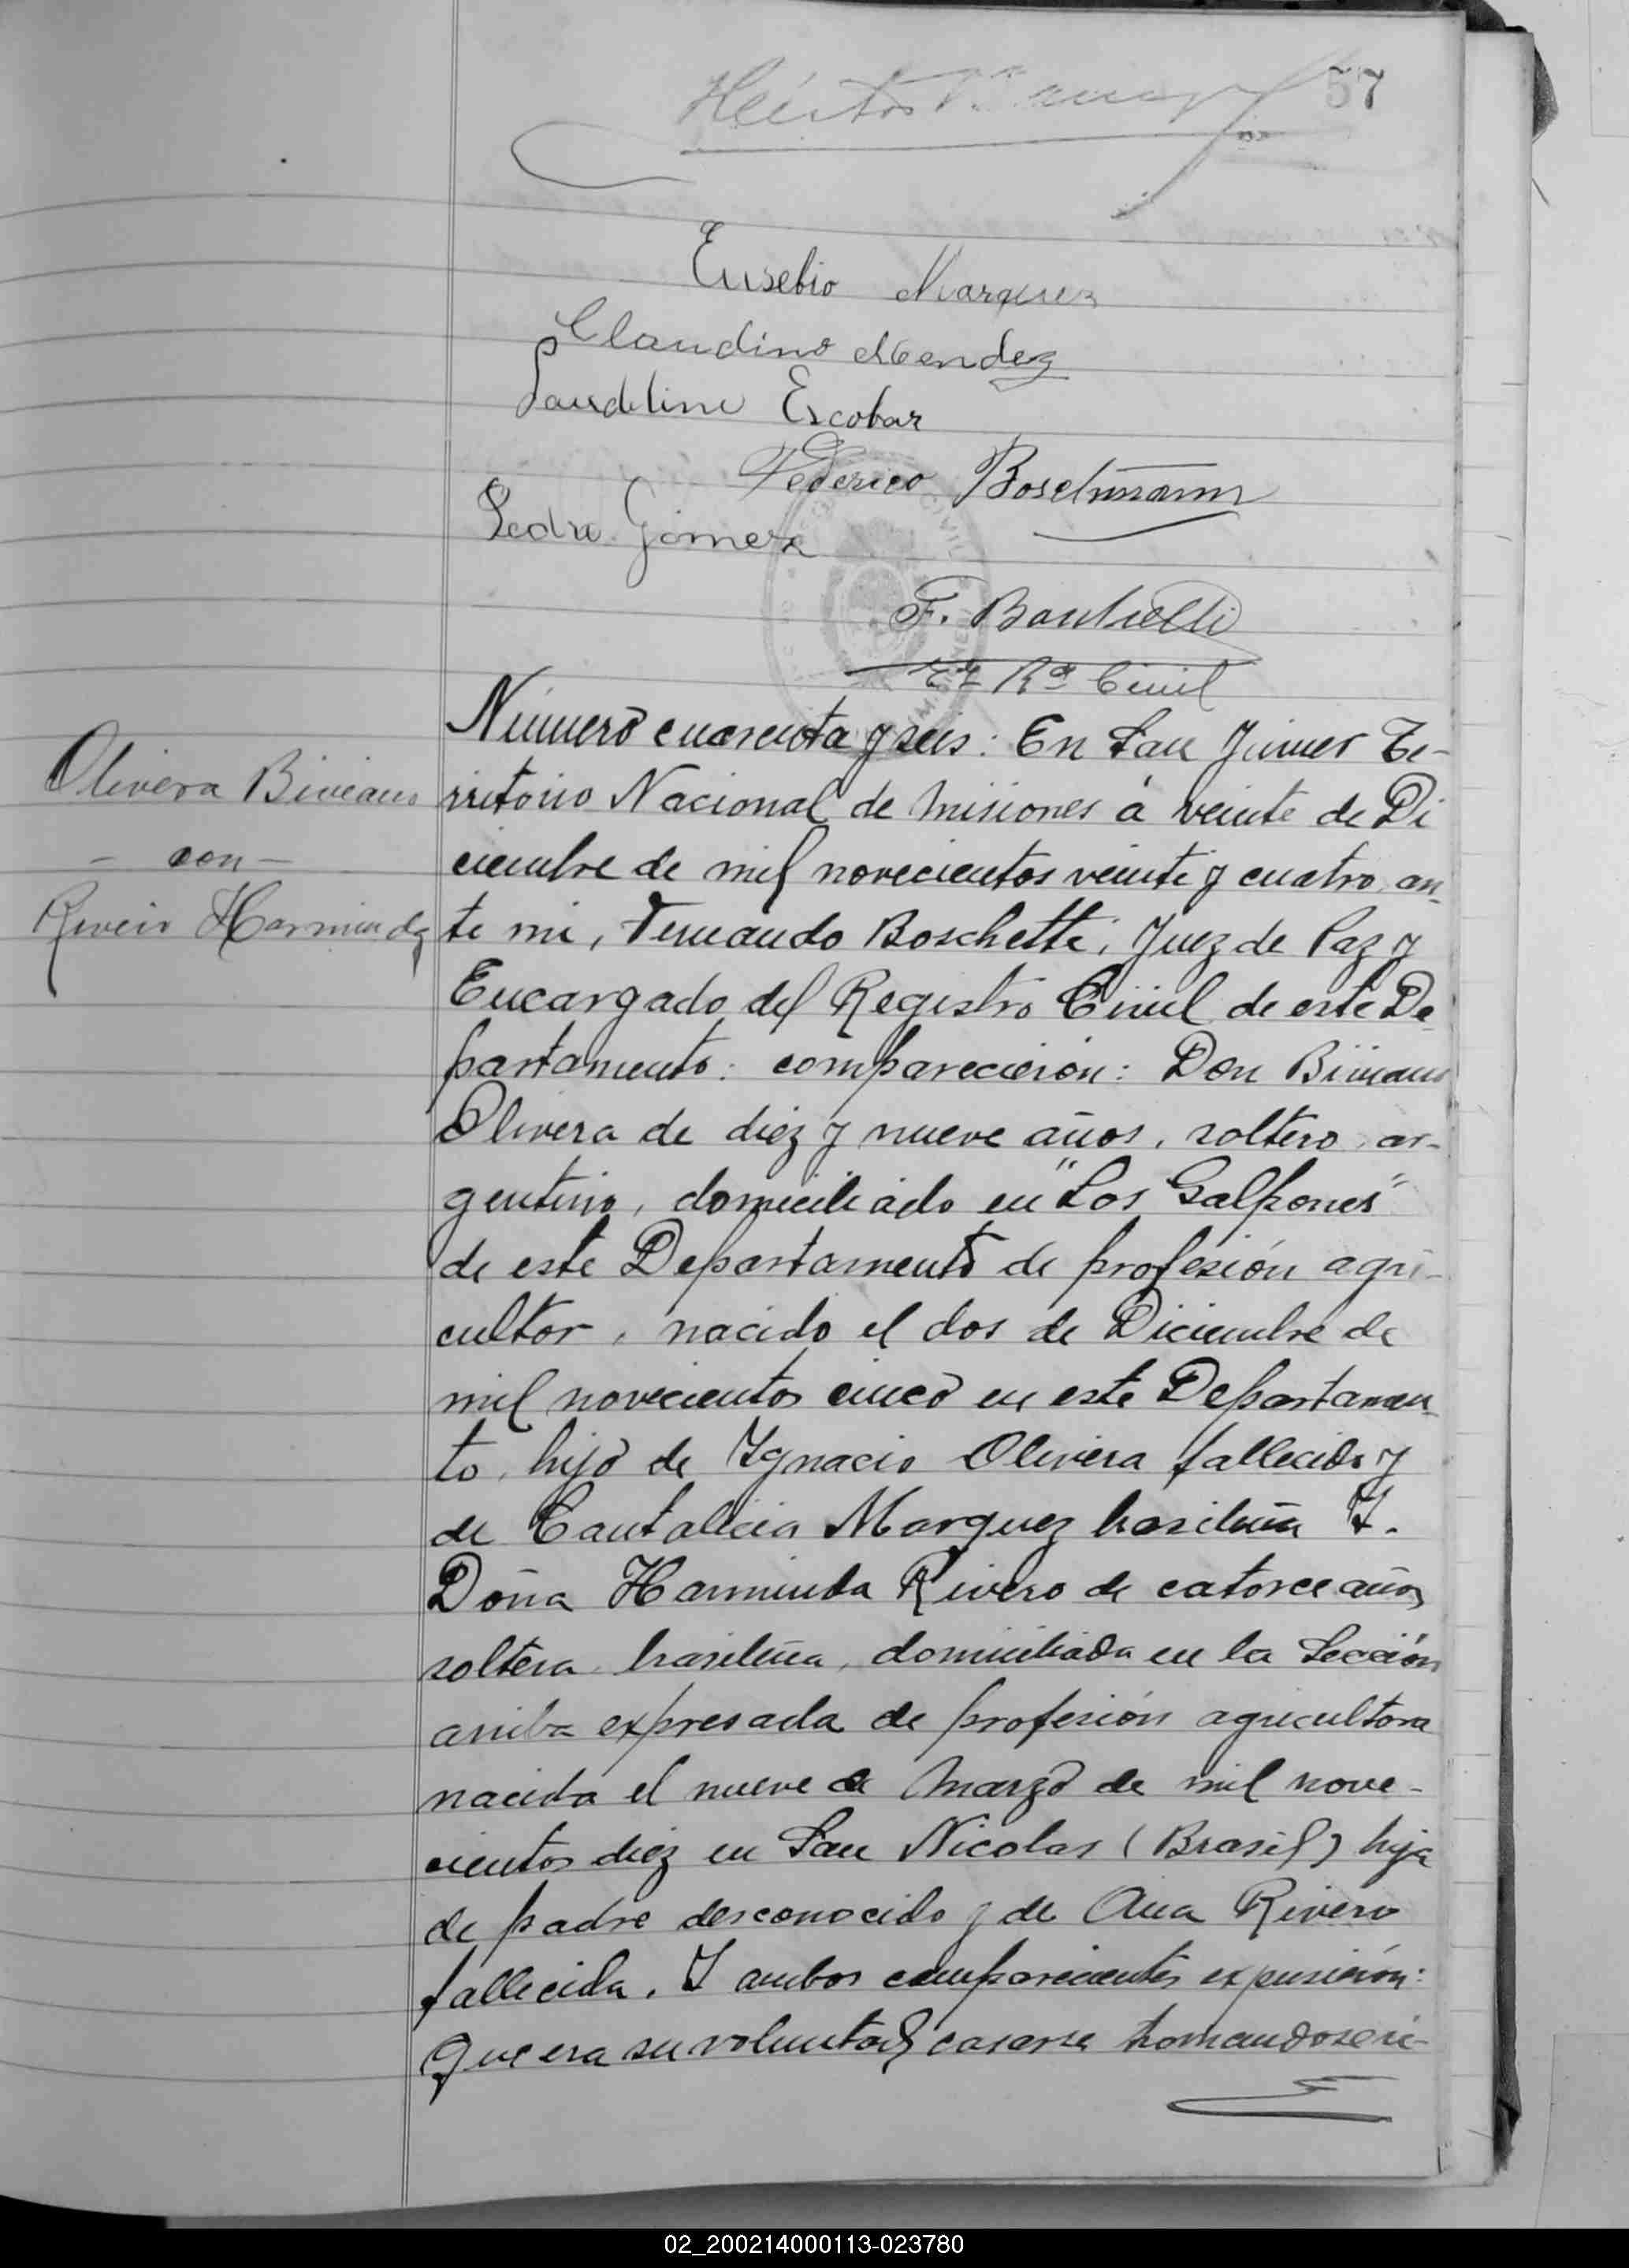 57
Eusebio Marquez
Claudino Mendez
Laudelino Escobar
Federico Boselmann
Pedro Gomez
CIVIL
F. Boschetti
Rº Civil
Número cuarenta y seis: En San Javier Te-
Olivera Biviano
rritorio Nacional de Misiones á veinte de Di
- con -
ciembre de mil novecientos veinte y cuatro, an-
Rivero Harminda
te mi, Fernando Boschetti, Juez de Paz y
Encargado del Registro Civil de este De-
partamento: comparecieron: Don Biviano
Olivera de diez y nueve años, soltero, ar-
gentino, domiciliado en "Los Galpones"
de este Departamento de profesión agri-
cultor, nacido el dos de Diciembre de
mil novecientos cinco en este Departamen-
to, hijo de Ygnacio Olivera fallecido y
de Cantalicia Marquez brasileña Y.
Doña Harminda Rivero de catorce años
soltera brasileña, domiciliada en la Sección
arriba expresada de profesión agricultora
nacida el nueve de Marzo de mil nove-
cientos diez en San Nicolas (Brasil) hija
de padre desconocido y de Ana Rivero
fallecida. Y ambos comparecientes expusieron:
Que era su voluntad casarse
02_200214000113-023780